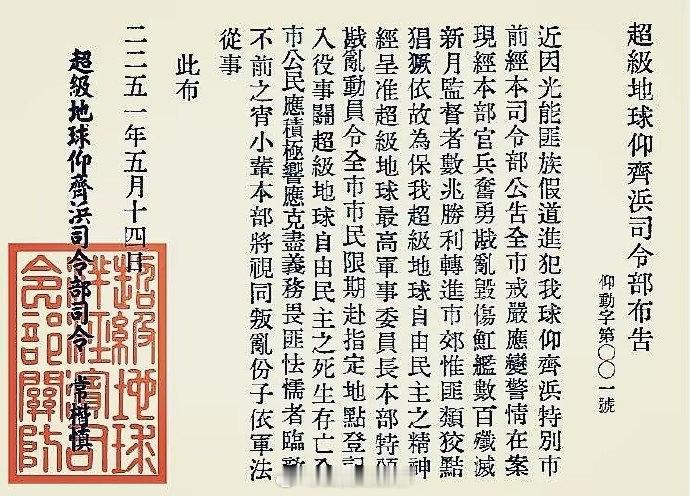 超級地球仰齊浜司令部布告
仰動字第〇〇一號
近因光能匪族假道進犯我球仰齊浜特別市
前經本司令部公告全市戒嚴應變警情在案
現經本部官兵奮勇戡亂毀傷魟艦數百殲滅
新月監督者數兆勝利轉進市郊惟匪類狡黠
猖獗依故為保我超級地球自由民主之精神
經呈准超級地球最高軍事委員長本部特頒
戡亂動員令全市市民限期赴指定地點登記
入役事關超級地球自由民主之死生存亡全
市公民應積極響應克盡義務畏匪怯懦者臨敵
不前之宵小輩本部將視同叛亂份子依軍法
從事
此布
二二五一年五月十四日
超級地球仰齊浜司令部司令 常楷慎
超級地球
濱司
令部關防